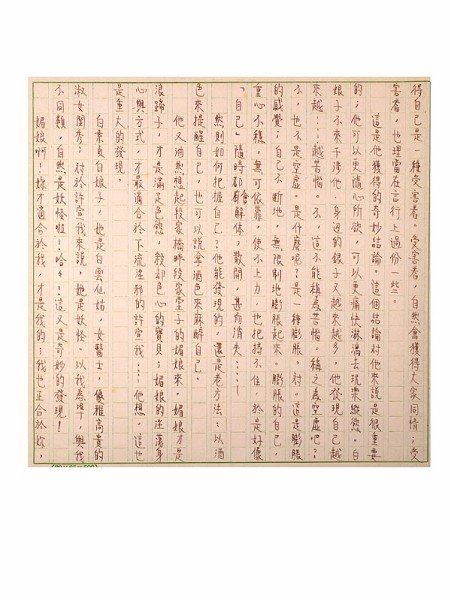 得自己是一種受害者。受害者,自然會獲得大家同情;受
害者,也理當在言行上過份一些。
這是他獲得的奇妙結論。這個結論對他來說是很重要
的;他可以更隨心所欲,可以更痛快淋漓去玩樂縱慾。白
娘子不來干涉他,身邊的銀子又越來越多,他發現自己越
來越……越苦惱。不,這不能稱為苦惱。稱之為空虛吧?
不,也不是空虛,是什麼呢?是一種膨脹,對。這是膨脹
的感覺;自己不斷地,無限制地膨脹起來。膨脹的自己,
重心不穩,無可依靠,使不上力,也把持不住,於是好像
「自己」隨時都會解體,散開,甚而消失……
然則如何把握自己?他能發現的,還是老方法:以酒
色來提醒自己,也可以說拿酒色來麻醉自己。
他又油然想起段家橋畔段家堂子的媚娘來。媚娘才是
浪蹄子,才是滿足色慾,卻色心的寶貝;媚娘的淫蕩身
心與方式,才最適合於下流淫邪的許宣我……他想。這也
是重大的發現。
白素貞白娘子,她是白雲仙姑,女醫士,優雅高貴的
淑女閨秀;對於許宣我來說,她是妖怪。以我為準,與我
不同類,自然是妖怪啦!哈哈!這又是奇妙的發現!
媚娘啊!妳才適合於我,才是我的;我也正合於妳,